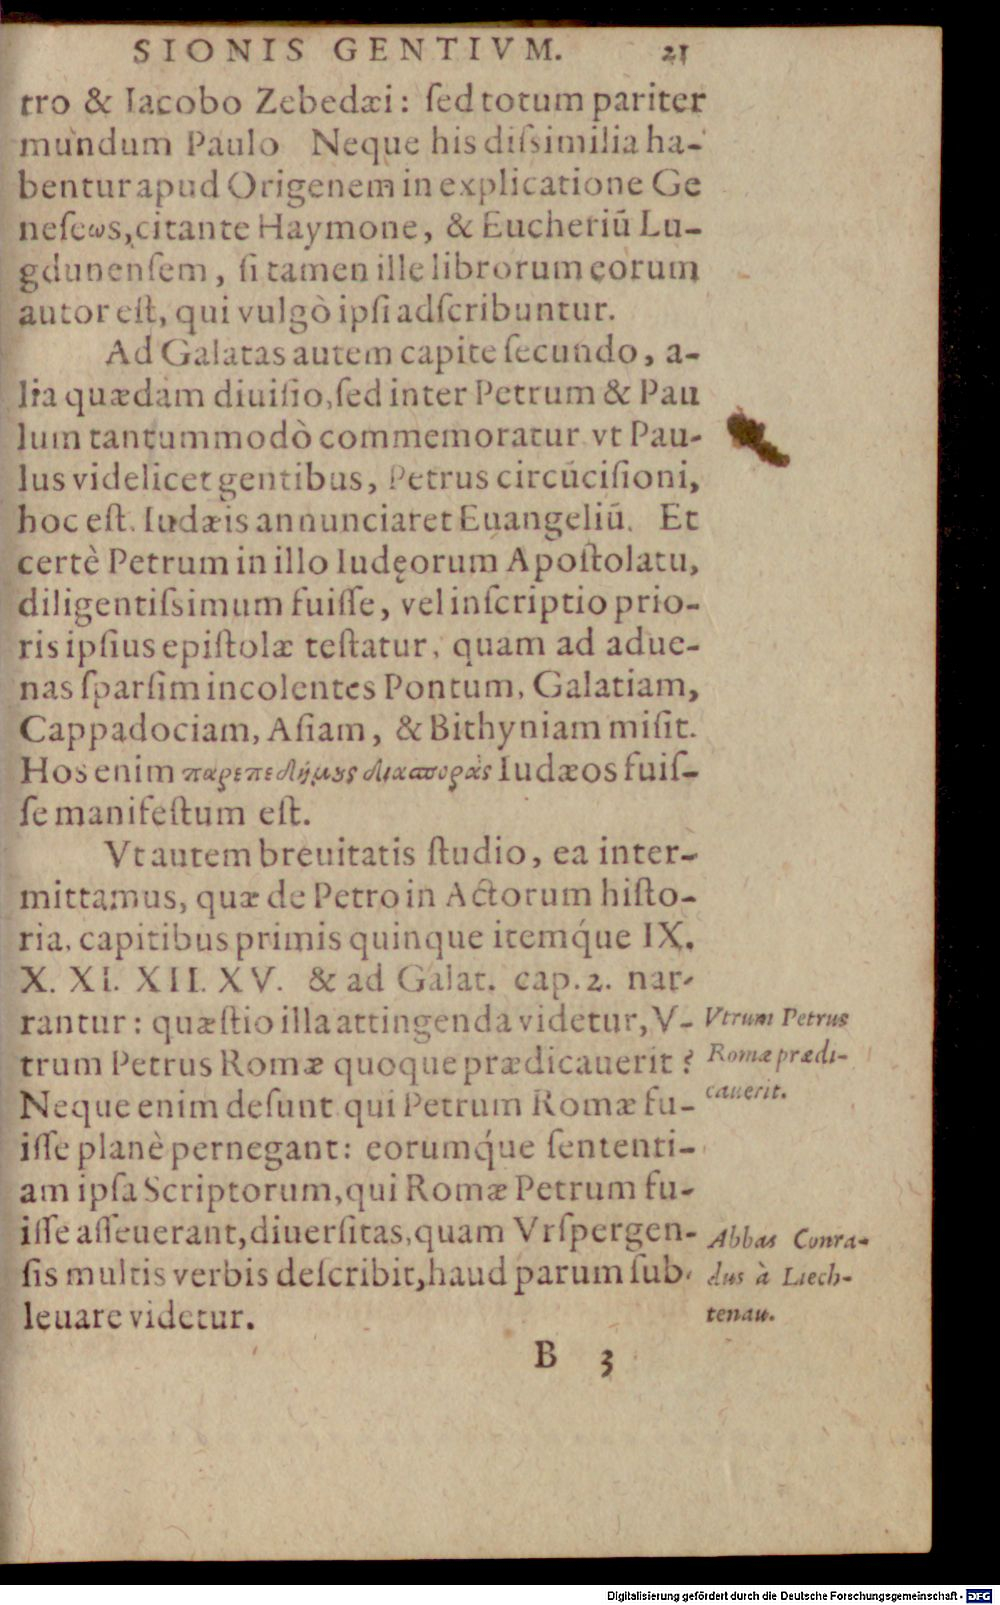 SIONIS GENTIVM. 21
tro & Iacobo Zebedæi: ſed totum pariter
mundum Paulo Neque his diſsimilia ha-
bentur apud Origenem in explicatione Ge
neſeωs, citante Haymone, & Eucheriũ Lu-
gdunenſem, ſi tamen ille librorum eorum
autor eſt, qui vulgò ipſi adſcribuntur.
Ad Galatas autem capite ſecundo, a-
lia quædam diuiſio, ſed inter Petrum & Pau
lum tantummodò commemoratur vt Pau-
lus videlicet gentibus, Petrus circũciſioni,
hoc eſt. Iudæis annunciaret Euangeliũ. Et
certè Petrum in illo Iudęorum Apoſtolatu,
diligentiſsimum fuiſſe, vel inſcriptio prio-
ris ipſius epiſtolæ teſtatur, quam ad adue-
nas ſparſim incolentes Pontum, Galatiam,
Cappadociam, Aſiam, & Bithyniam miſit.
Hos enim παρεπεδήμυς διασπορᾶς Iudæos fuiſ-
ſe manifeſtum eſt.
Vt autem breuitatis ſtudio, ea inter-
mittamus, quæ de Petro in Actorum hiſto-
ria, capitibus primis quinque itemq́ue IX.
X. XI. XII. XV. & ad Galat. cap. 2. nar-
rantur: quæſtio illa attingenda videtur, V-
trum Petrus Romæ quoque prædicauerit?
Neque enim deſunt qui Petrum Romæ fu-
iſſe planè pernegant: eorumq́ue ſententi-
am ipſa Scriptorum, qui Romæ Petrum fu-
iſſe aſſeuerant, diuerſitas, quam Vrſpergen-
ſis multis verbis deſcribit, haud parum ſub-
leuare videtur.
Vtrum Petrus
Romæ prædi-
cauerit.
Abbas Conra-
dus à Liech-
tenau.
B 3
Digitalisierung gefördert durch die Deutsche Forschungsgemeinschaft - DFG